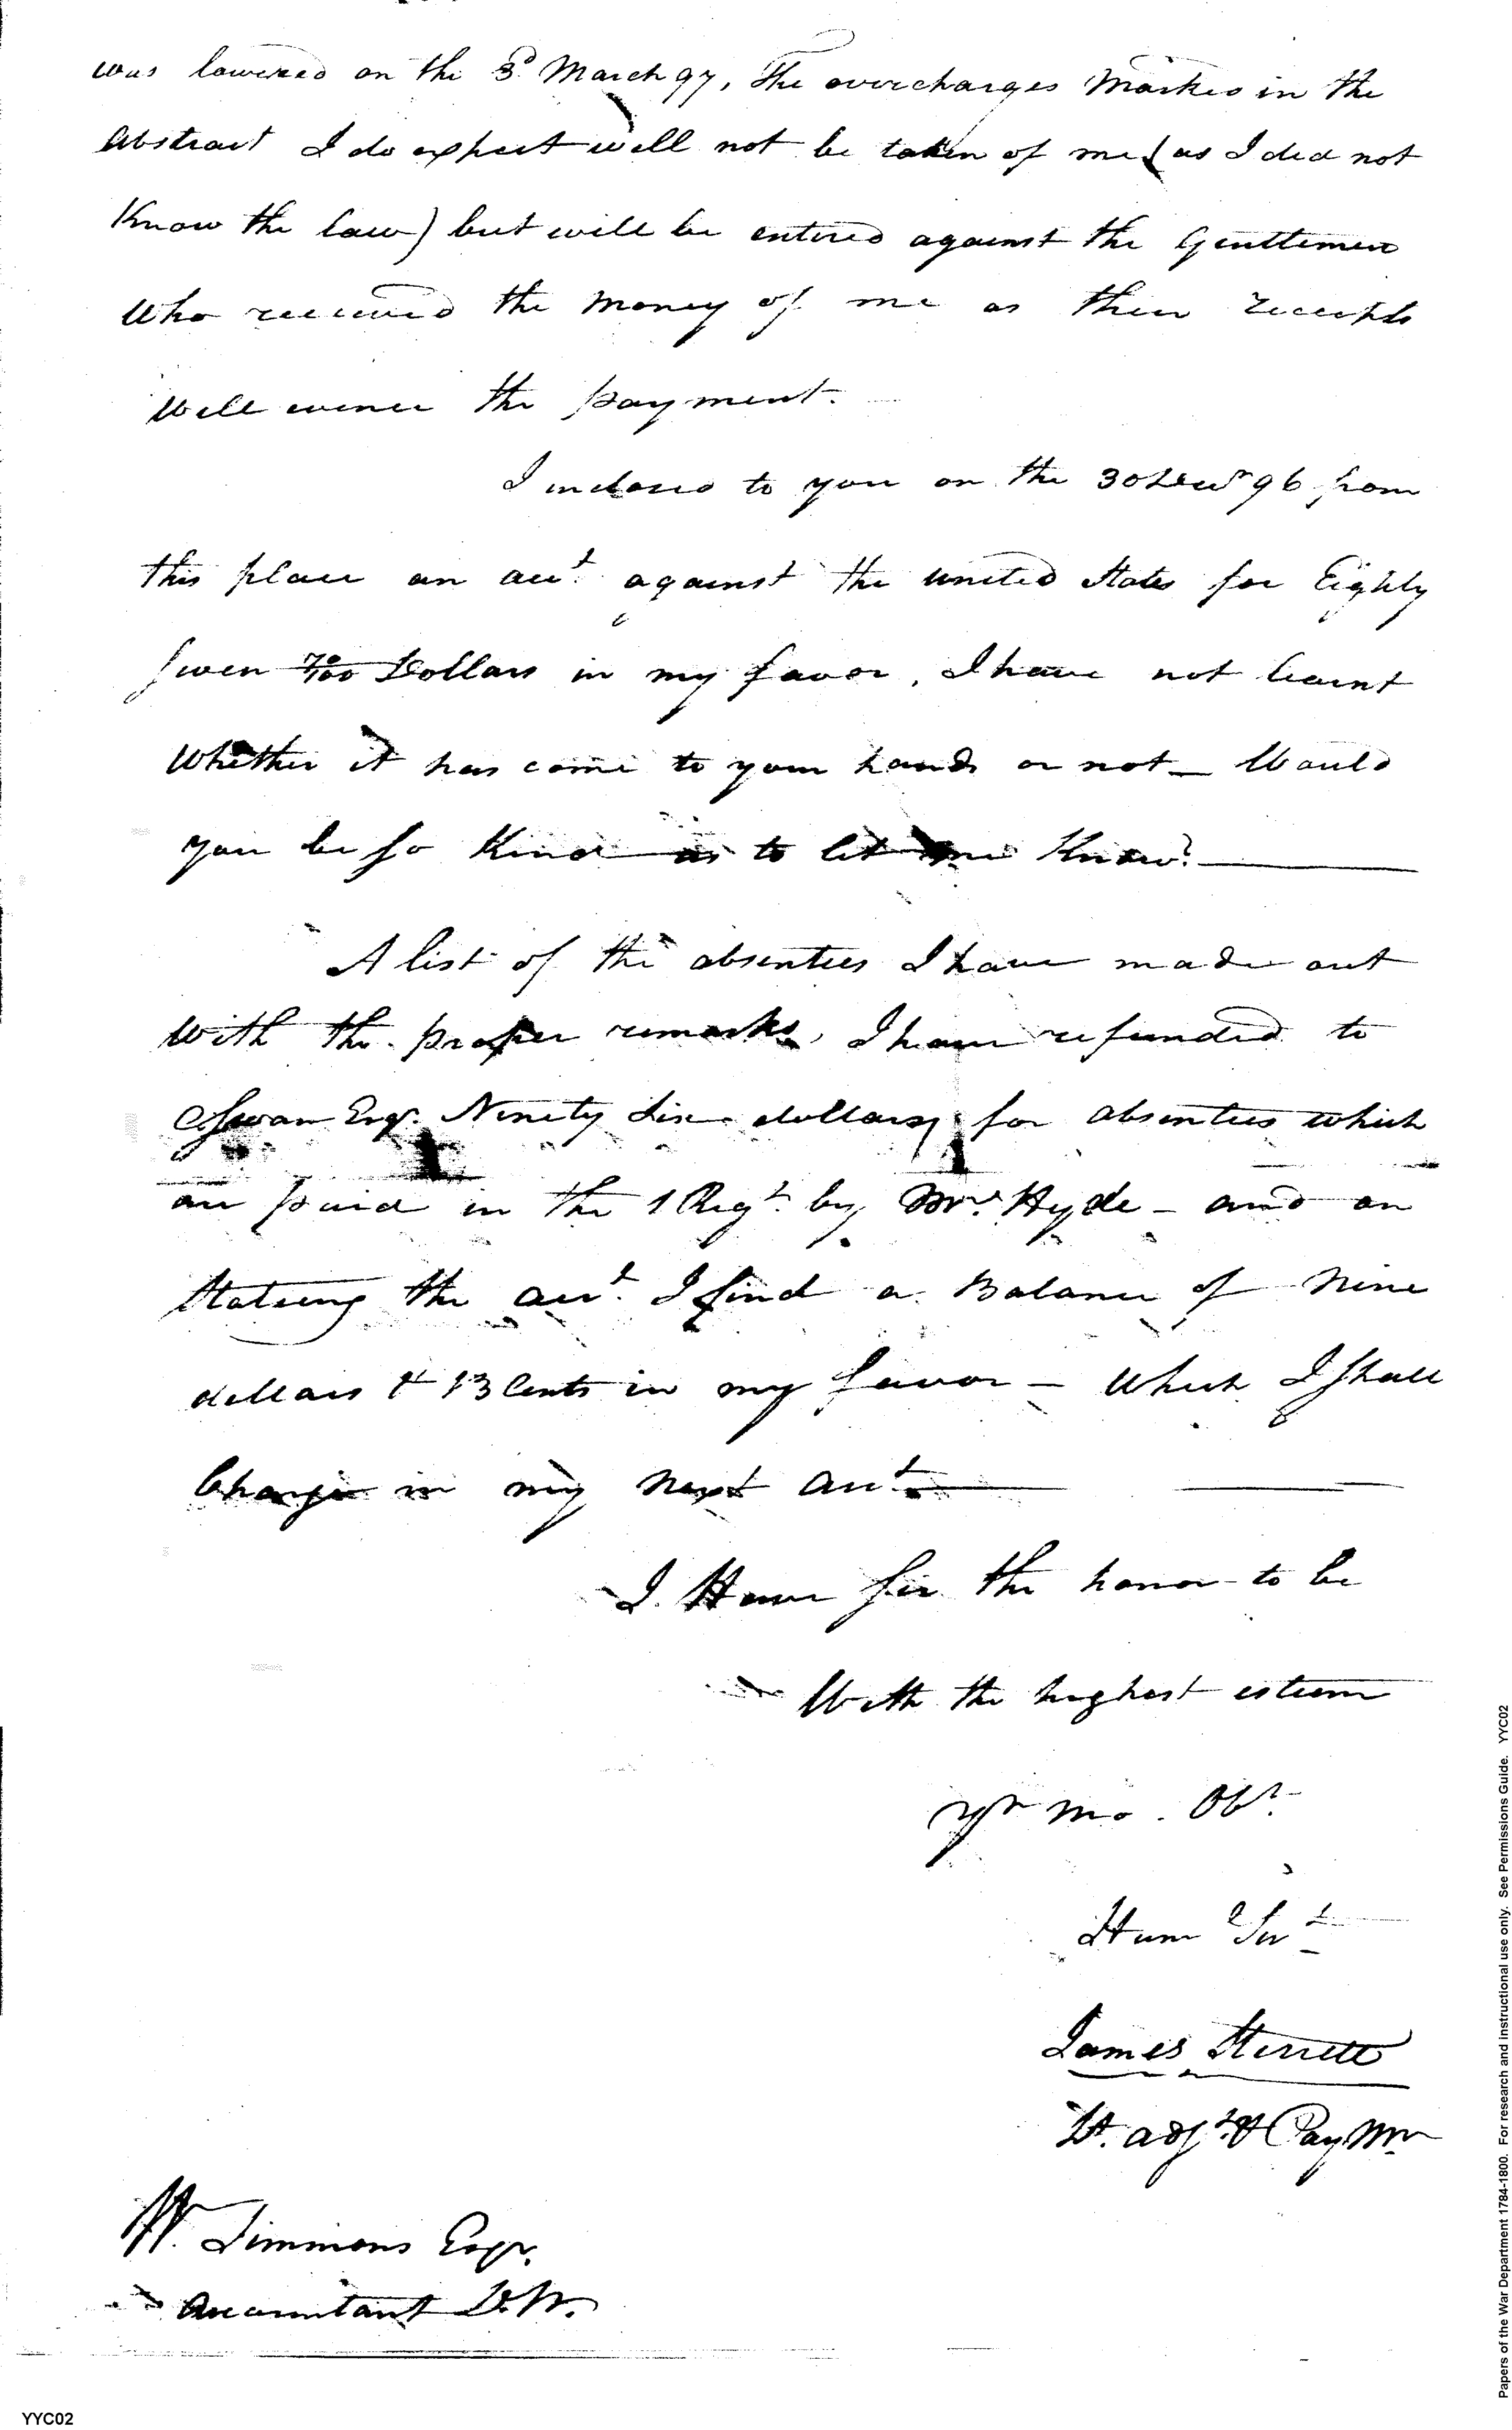 was lowered on the 3d March 97, The overcharges Marked in the
Abstract I do expect will not be taken of me (as I did not
Know the law) but will be entered against the Genttemen
Who received the Money of me as their receipts
Will evince the payment.
I inclosed to you on the 30 Decr 96 from
this place an acct. against the united States for Eighty
Seven 70/100 Dollars in my favor, I have not learnt
Whether it has come to your hands or not — Would
you be so Kind as to let me Know?
A list of the absentees I have made out
With the proper remarks, I have refunded to
C Swan Esqr. Ninety Six dollars, for absentees which
are paid in the 1 Regt. by Mr. Hyde — and on
Stateing the acct. I find a Balance of Nine
dollars & 13 Cents in my favor — Which I shall
Charge in my Next acct.
I Have Sir the honor to be
With the highest esteem
yr mo. Obt.
Huml Svt
James Sterrett
Lt. adjt. & Pay Mr
W. Simmons Esqr.
Accountant D.W.
YYC02
Papers of the War Department 1784-1800. For research and instructional use only. See Permissions Guide. YYC02